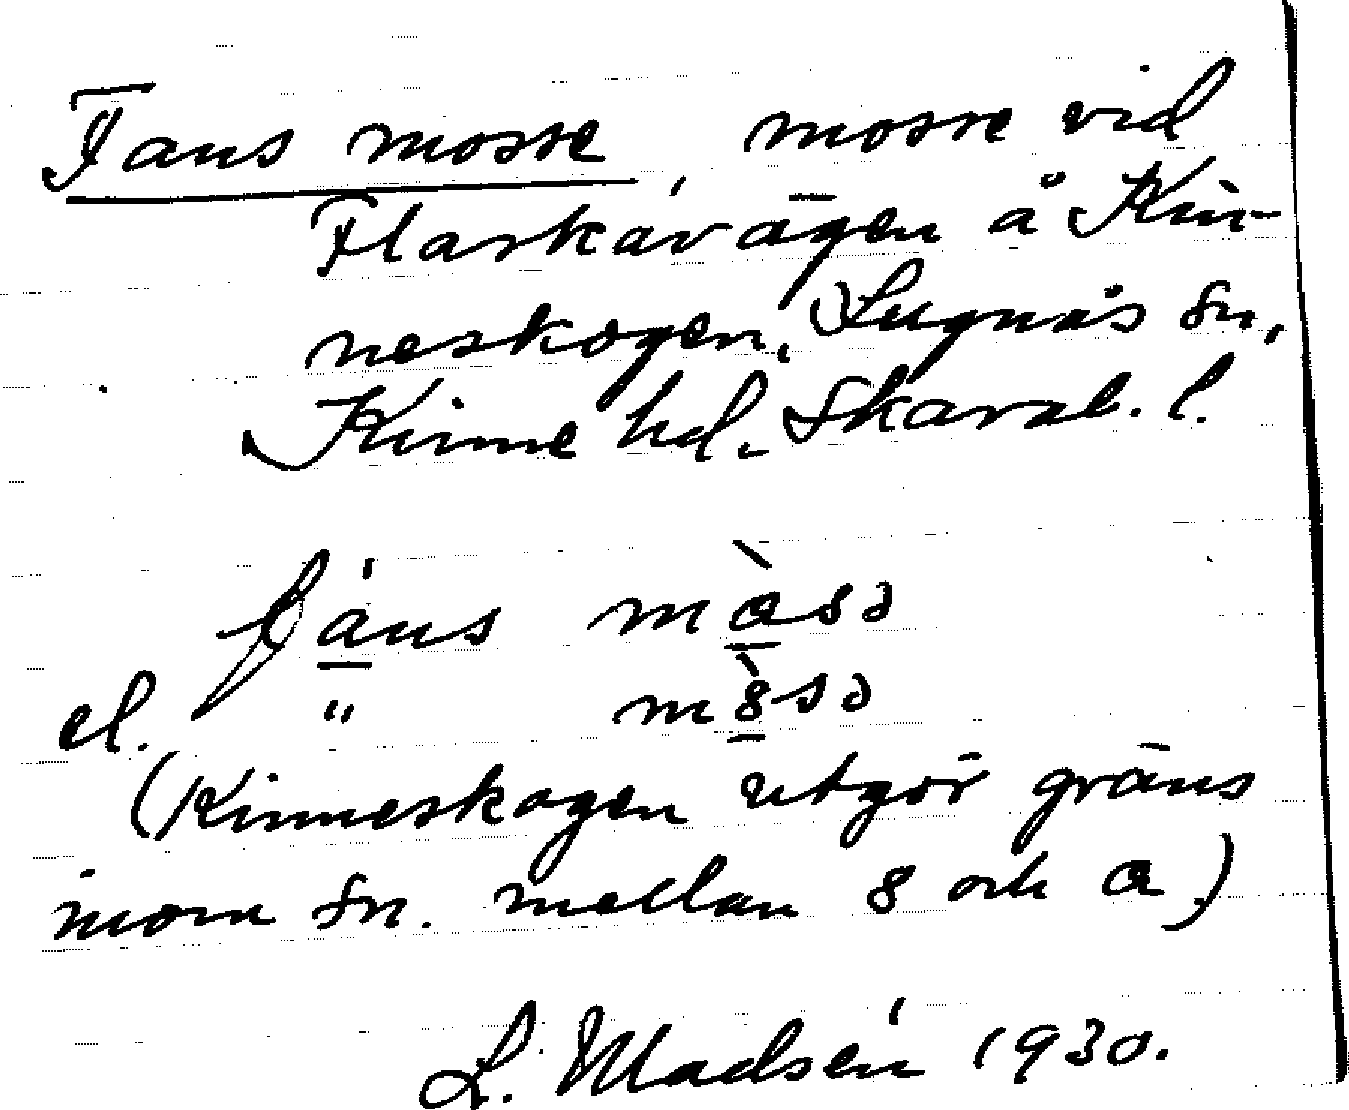 Fans mosse, mosse vid
Flaskavägen å Kin-
neskogen, Lugnås sn,
Kinne hd. Skarab. l.
fáns mòsə
el. " m8̀sə
(Kinneskogen utgör gräns
inom sn. mellan 8 och a)
L. Madsén 1930.